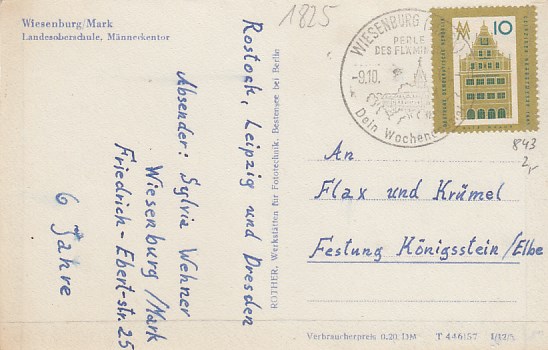 Wiesenburg/Mark
Landesoberschule, Männeckentor
1825
WIESENBURG/
PERLE
DES FLÄMIN
-9.10.
Dein Wochen
10
843
2,-
Rostock, Leipzig und Dresden
Absender: Sylvia Wehner
Wiesenburg/Mark
Friedrich-Ebert-str. 25
6 Jahre
ROTHER, Werkstätten für Fototechnik, Bestensee bei Berlin
An
Flax und Krümel
Festung Königsstein/Elbe
Verbraucherpreis 0.20 DM T 446/57